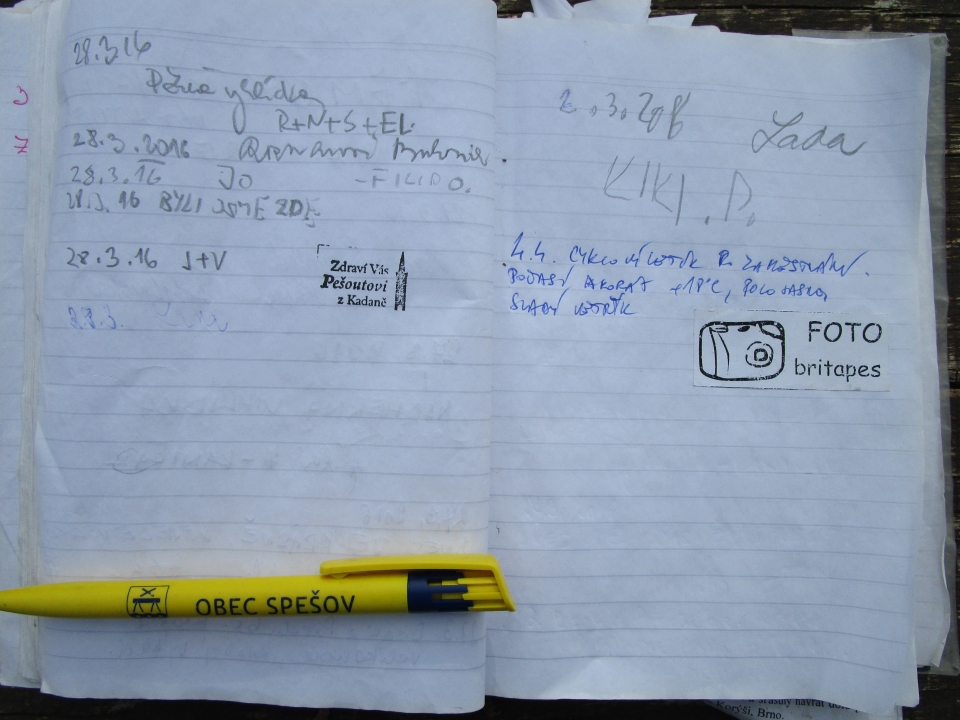 28.3 16
Pěkná vyhlídka
R+N+S+EL
28.3.2016
28.3.16 JO -FILIP O.
28.3.16 BYLI JSME ZDE
28.3.16 J+V
Zdraví Vás
Pešoutovi
z Kadaně
28.3.
3
7
OBEC SPEŠOV
Lada
KIKI.D.
4.4. CYKLOVÝLETÍK
POČASÍ AKORÁT +18°C, POLOJASNO,
SLABÝ VĚTŘÍK
FOTO
britapes
Korýši, Brno.